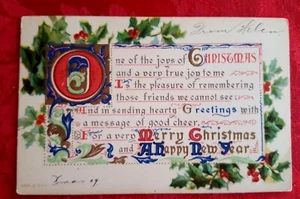 From Helen
One of the joys of Christmas
and a very true joy to me
Is the pleasure of remembering
those friends we cannot see
And in sending hearty Greetings with
a message of good cheer
For a very Merry Christmas
and A Happy New Year